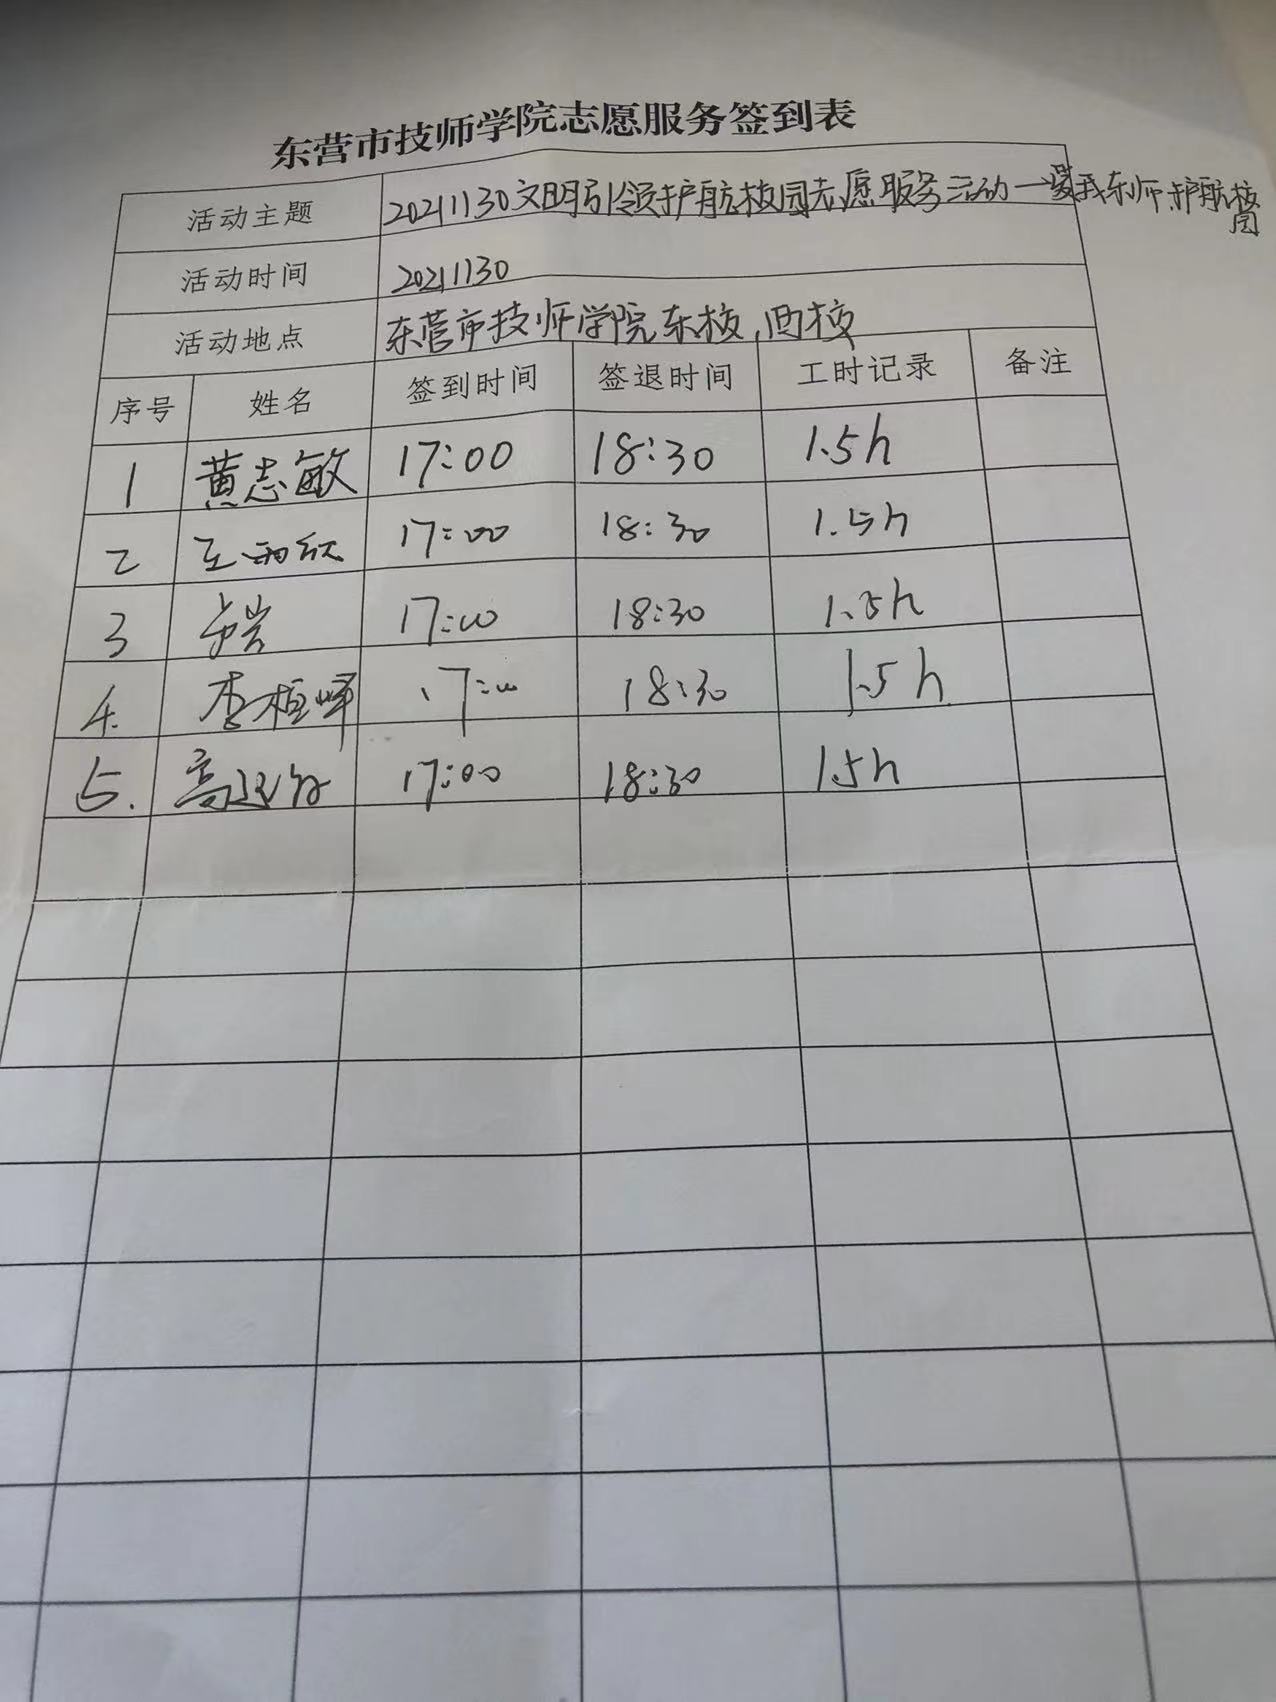 东营市技师学院志愿服务签到表
活动主题 20211130文明引领护航校园志愿服务活动一爱我东师护航校园
活动时间 20211130
活动地点 东营市技师学院东校,西校
序号 姓名 签到时间 签退时间 工时记录 备注
1 黄志敏 17:00 18:30 1.5h
2 王雨欣 17:00 18:30 1.5h
3 17:00 18:30 1.5h
4. 李桓峰 17:00 18:30 1.5h
5. 17:00 18:30 1.5h